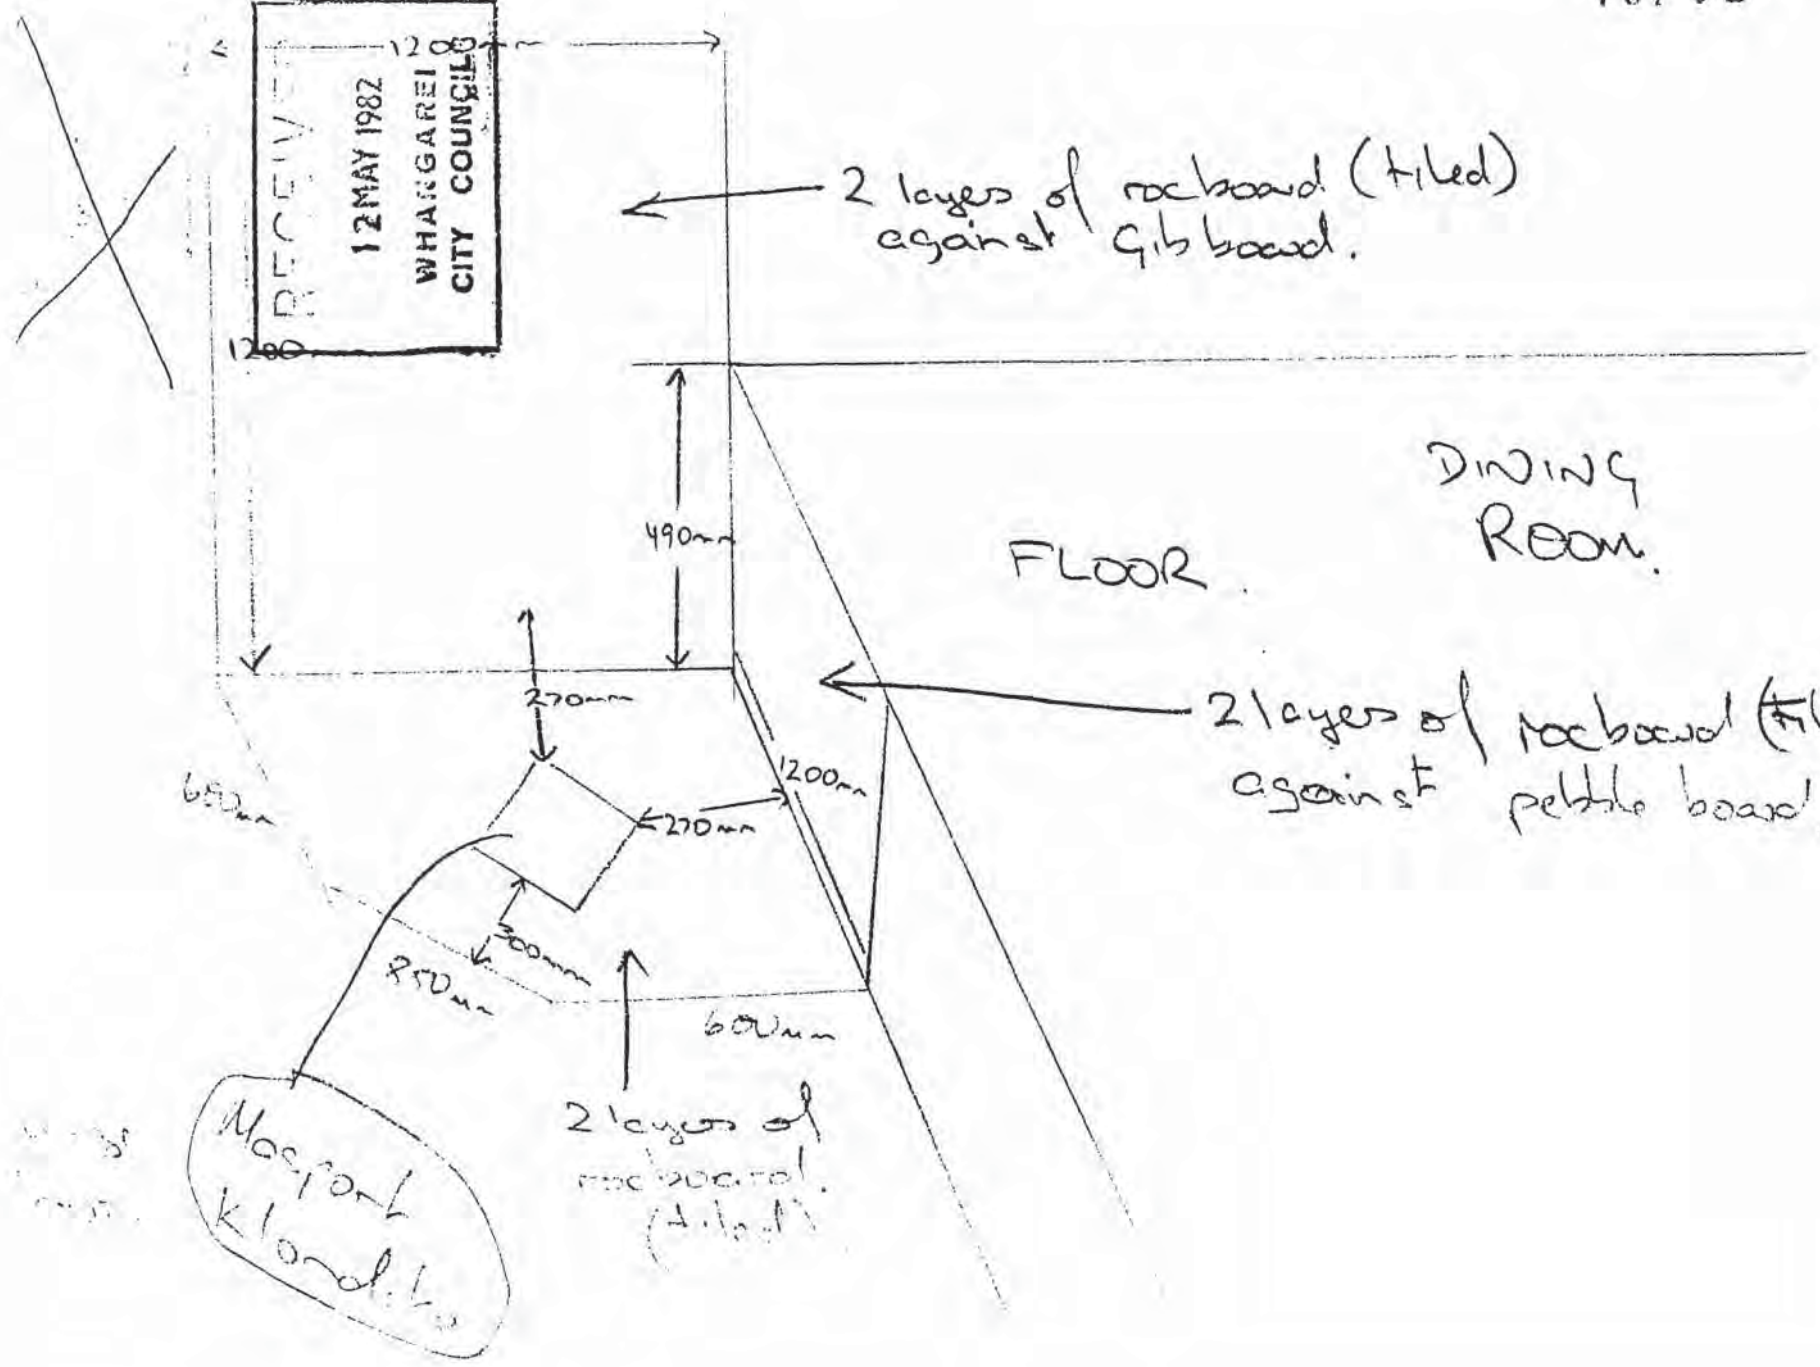 1200mm
RECEIVED
12 MAY 1982
WHANGAREI
CITY COUNCIL
2 layers of rocboard (tiled)
against Gibboard.
1200
DINING
ROOM.
490mm
FLOOR.
270mm
2 layers of rocboard
against pebble board
1200mm
270mm
600mm
300mm
850mm
600mm
2 layers of
rocboard.
(tiled)
Masport
Klondike